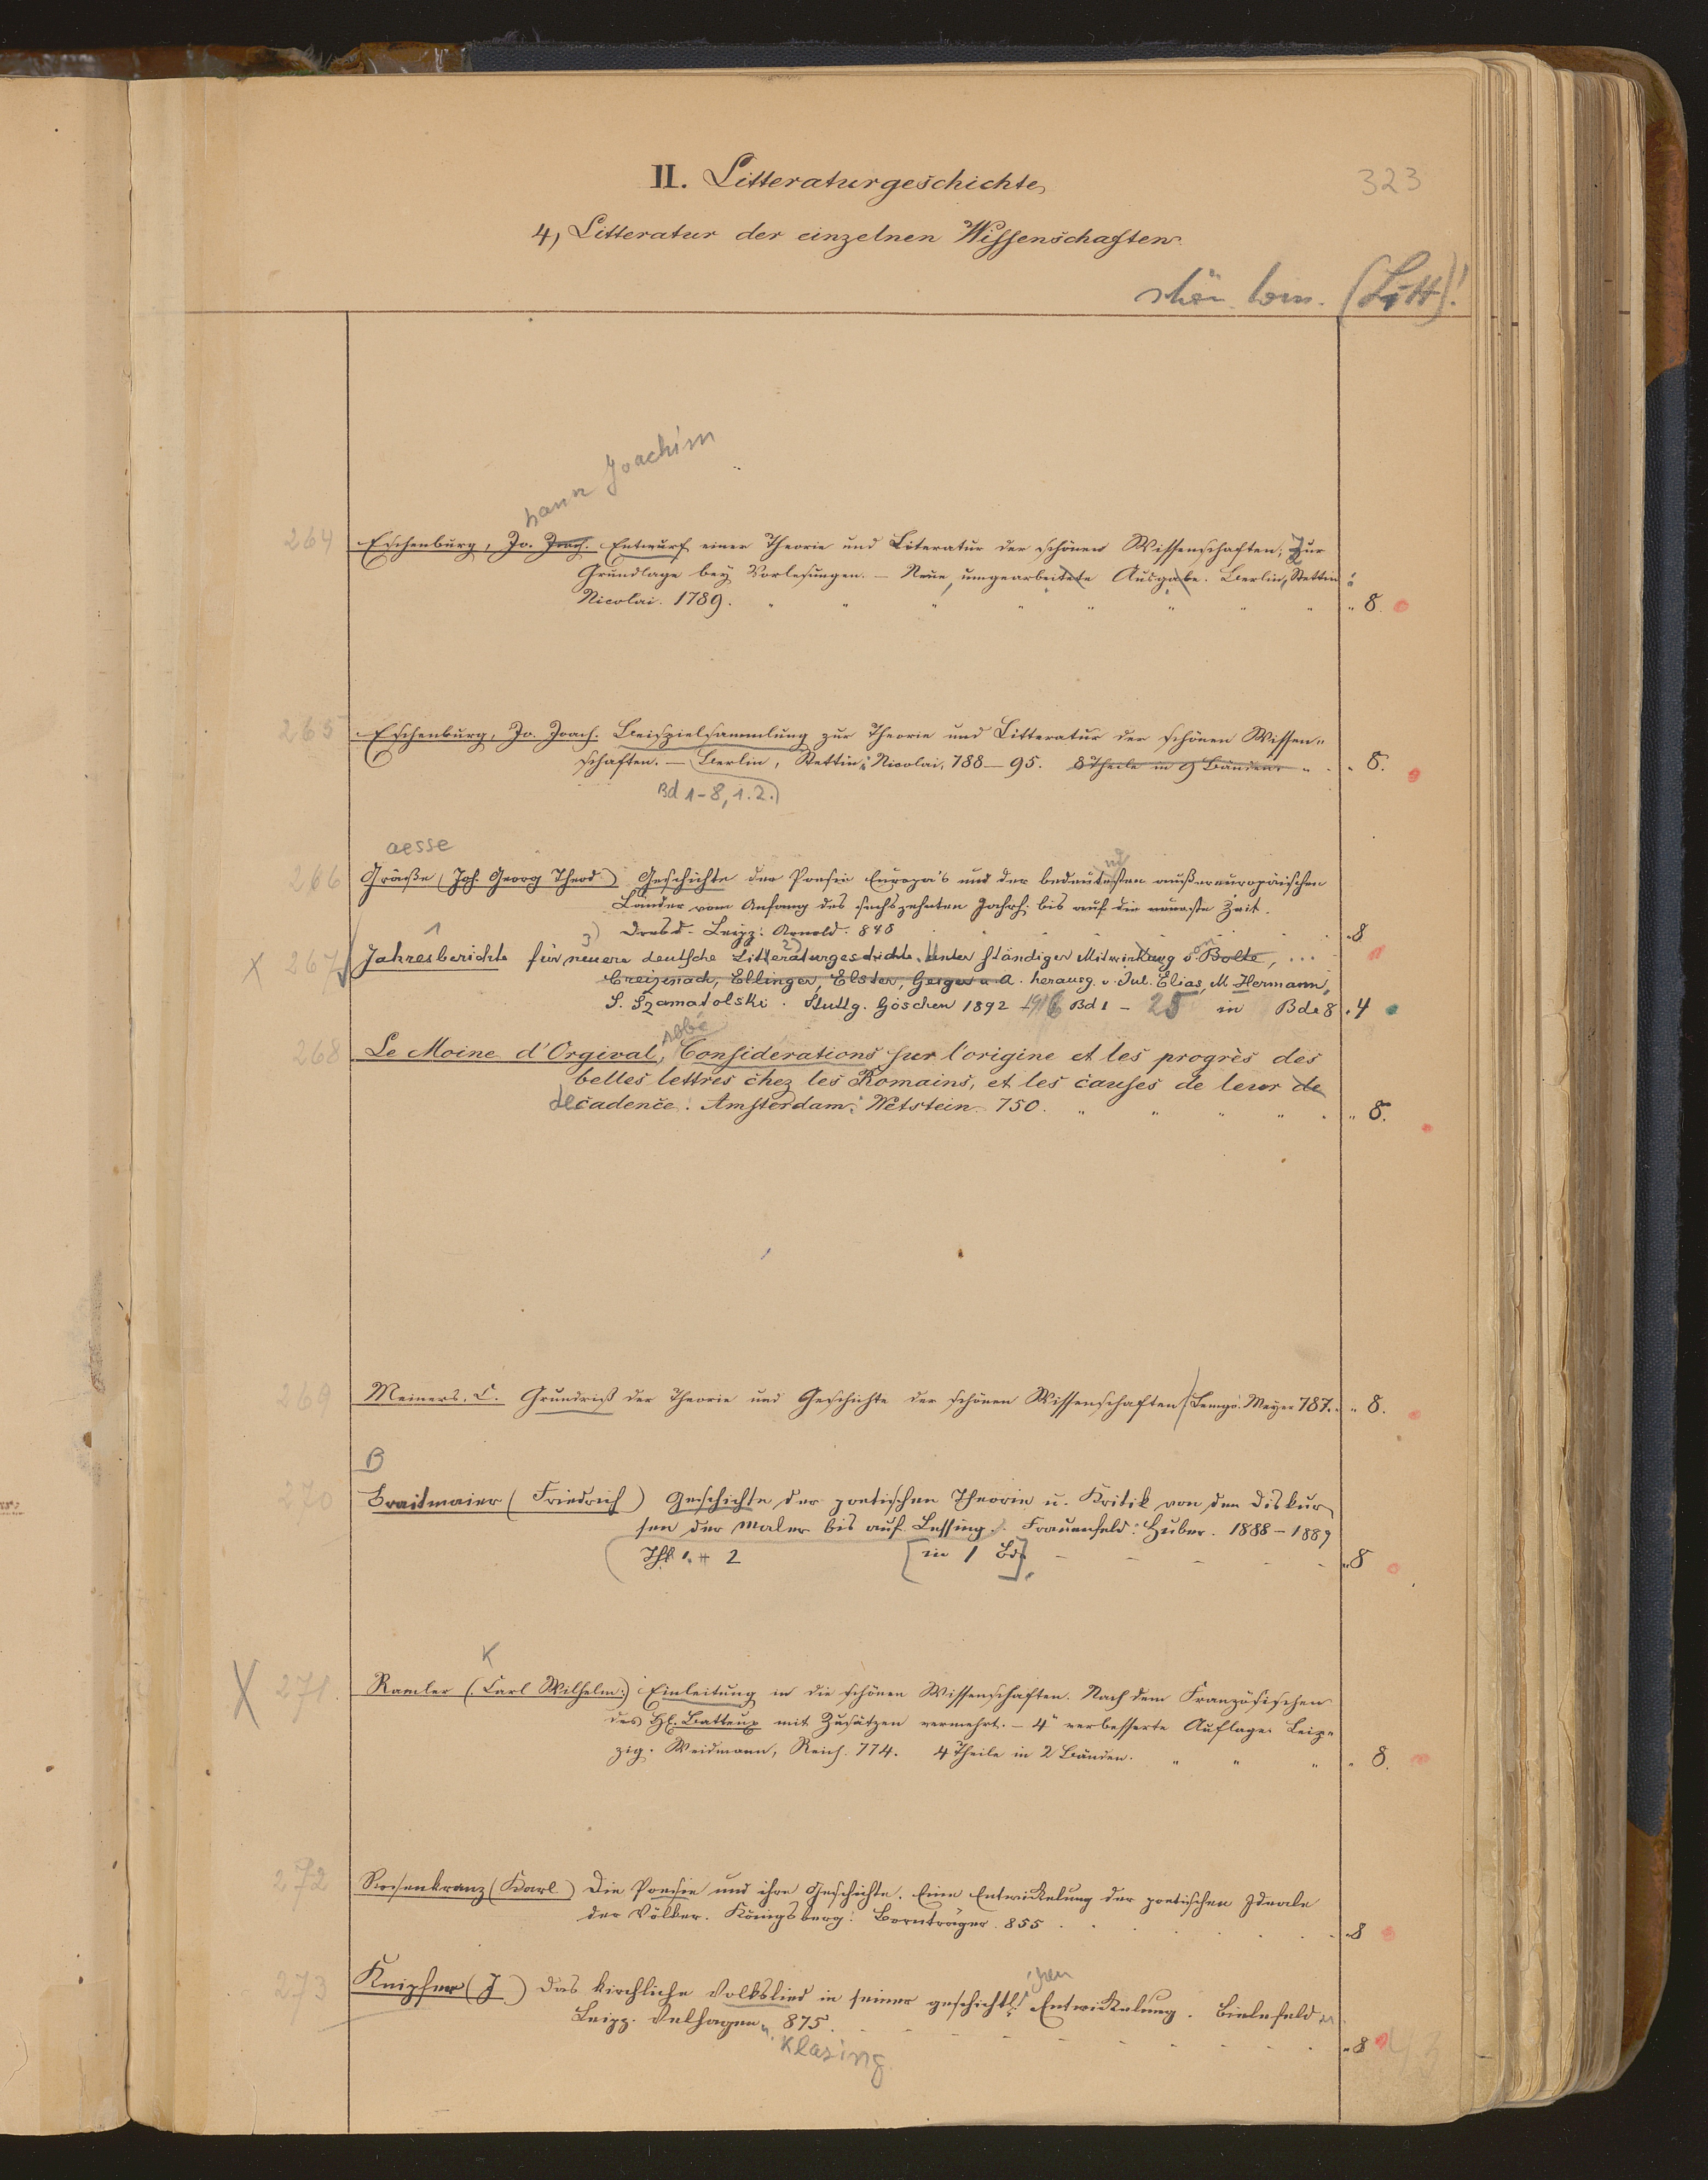 II. Litteraturgeschichte,
323
4, Litteratur der einzelnen Wissenschaften.
(Litt)!
hann Joachim
264 Eschenburg, Jo. Joach. Entwurf einer Theorie und Literatur der schönen Wissenschaften; Zur
Grundlage bey Vorlesungen. — Neue, umgearbeitete Ausgabe. Berlin, Stettin:
Nicolai. 1789. " " " " " " " " " 8.
265 Eschenburg, Jo. Joach. Beispielsammlung zur Theorie und Litteratur der schönen Wissen-
schaften. — Berlin, Stettin: Nicolai, 788–95. 8 Theile in 9 Bänden. " . . 8.
Bd 1–8, 1. 2.)
aesse
266 Gräße (Joh. Georg Theod.) Geschichte der Poesie Europa's und der bedeutendsten außereuropäischen
Länder vom Anfang des sechszehnten Jahrh. bis auf die neueste Zeit.
Dresd. Leipz: Arnold. 848 . . . 8
X 267 Jahresberichte für neuere deutsche Litteraturgeschichte. Unter ständiger Mitwirkung von Bolte, ...
Creizenach, Ellinger, Elster, Geiger u. A. herausg. v. Jul. Elias, M Hermann,
S. Szamatolski. Stuttg. Göschen 1892 –1916 Bd 1 – 25 in Bde 8 . 4
abbé
268 Le Moine d'Orgival, Considerations sur l'origine et les progrès des
belles lettres chez les Romains, et les causes de leur de
decadence. Amsterdam: Wetstein. 750. " " " " . " 8.
269 Meiners, C. Grundriß der Theorie und Geschichte der schönen Wissenschaften (Lemgo: Meyer 787. " 8.
B
270 Braitmaier (Friedrich) Geschichte der poetischen Theorie u. Kritik von den Diskur
sen der Maler bis auf Lessing. Frauenfeld: Huber. 1888–1889
Thl 1. + 2 [in 1 Bd]. – – – – – " 8
K
X 271. Ramler (Carl Wilhelm) Einleitung in die schönen Wissenschaften. Nach dem Französischen
des H. Batteux mit Zusätzen vermehrt. – 4" verbesserte Auflage. Leip-
zig. Weidmann, Reich. 774. 4 Theile in 2 Bänden. " " " " 8.
272 Rosenkranz (Karl) Die Poesie und ihre Geschichte. Eine Entwickelung der poetischen Ideale
der Völker. Königsberg: Bornträger. 855 . . . . . . 8
273 Knipfer (J) Das kirchliche Volkslied in seiner geschichtl. ichen Entwickelung. Bielefeld u.
Leipz. Velhagen u. 875. – – – – – – . . . " 8
Klasing.